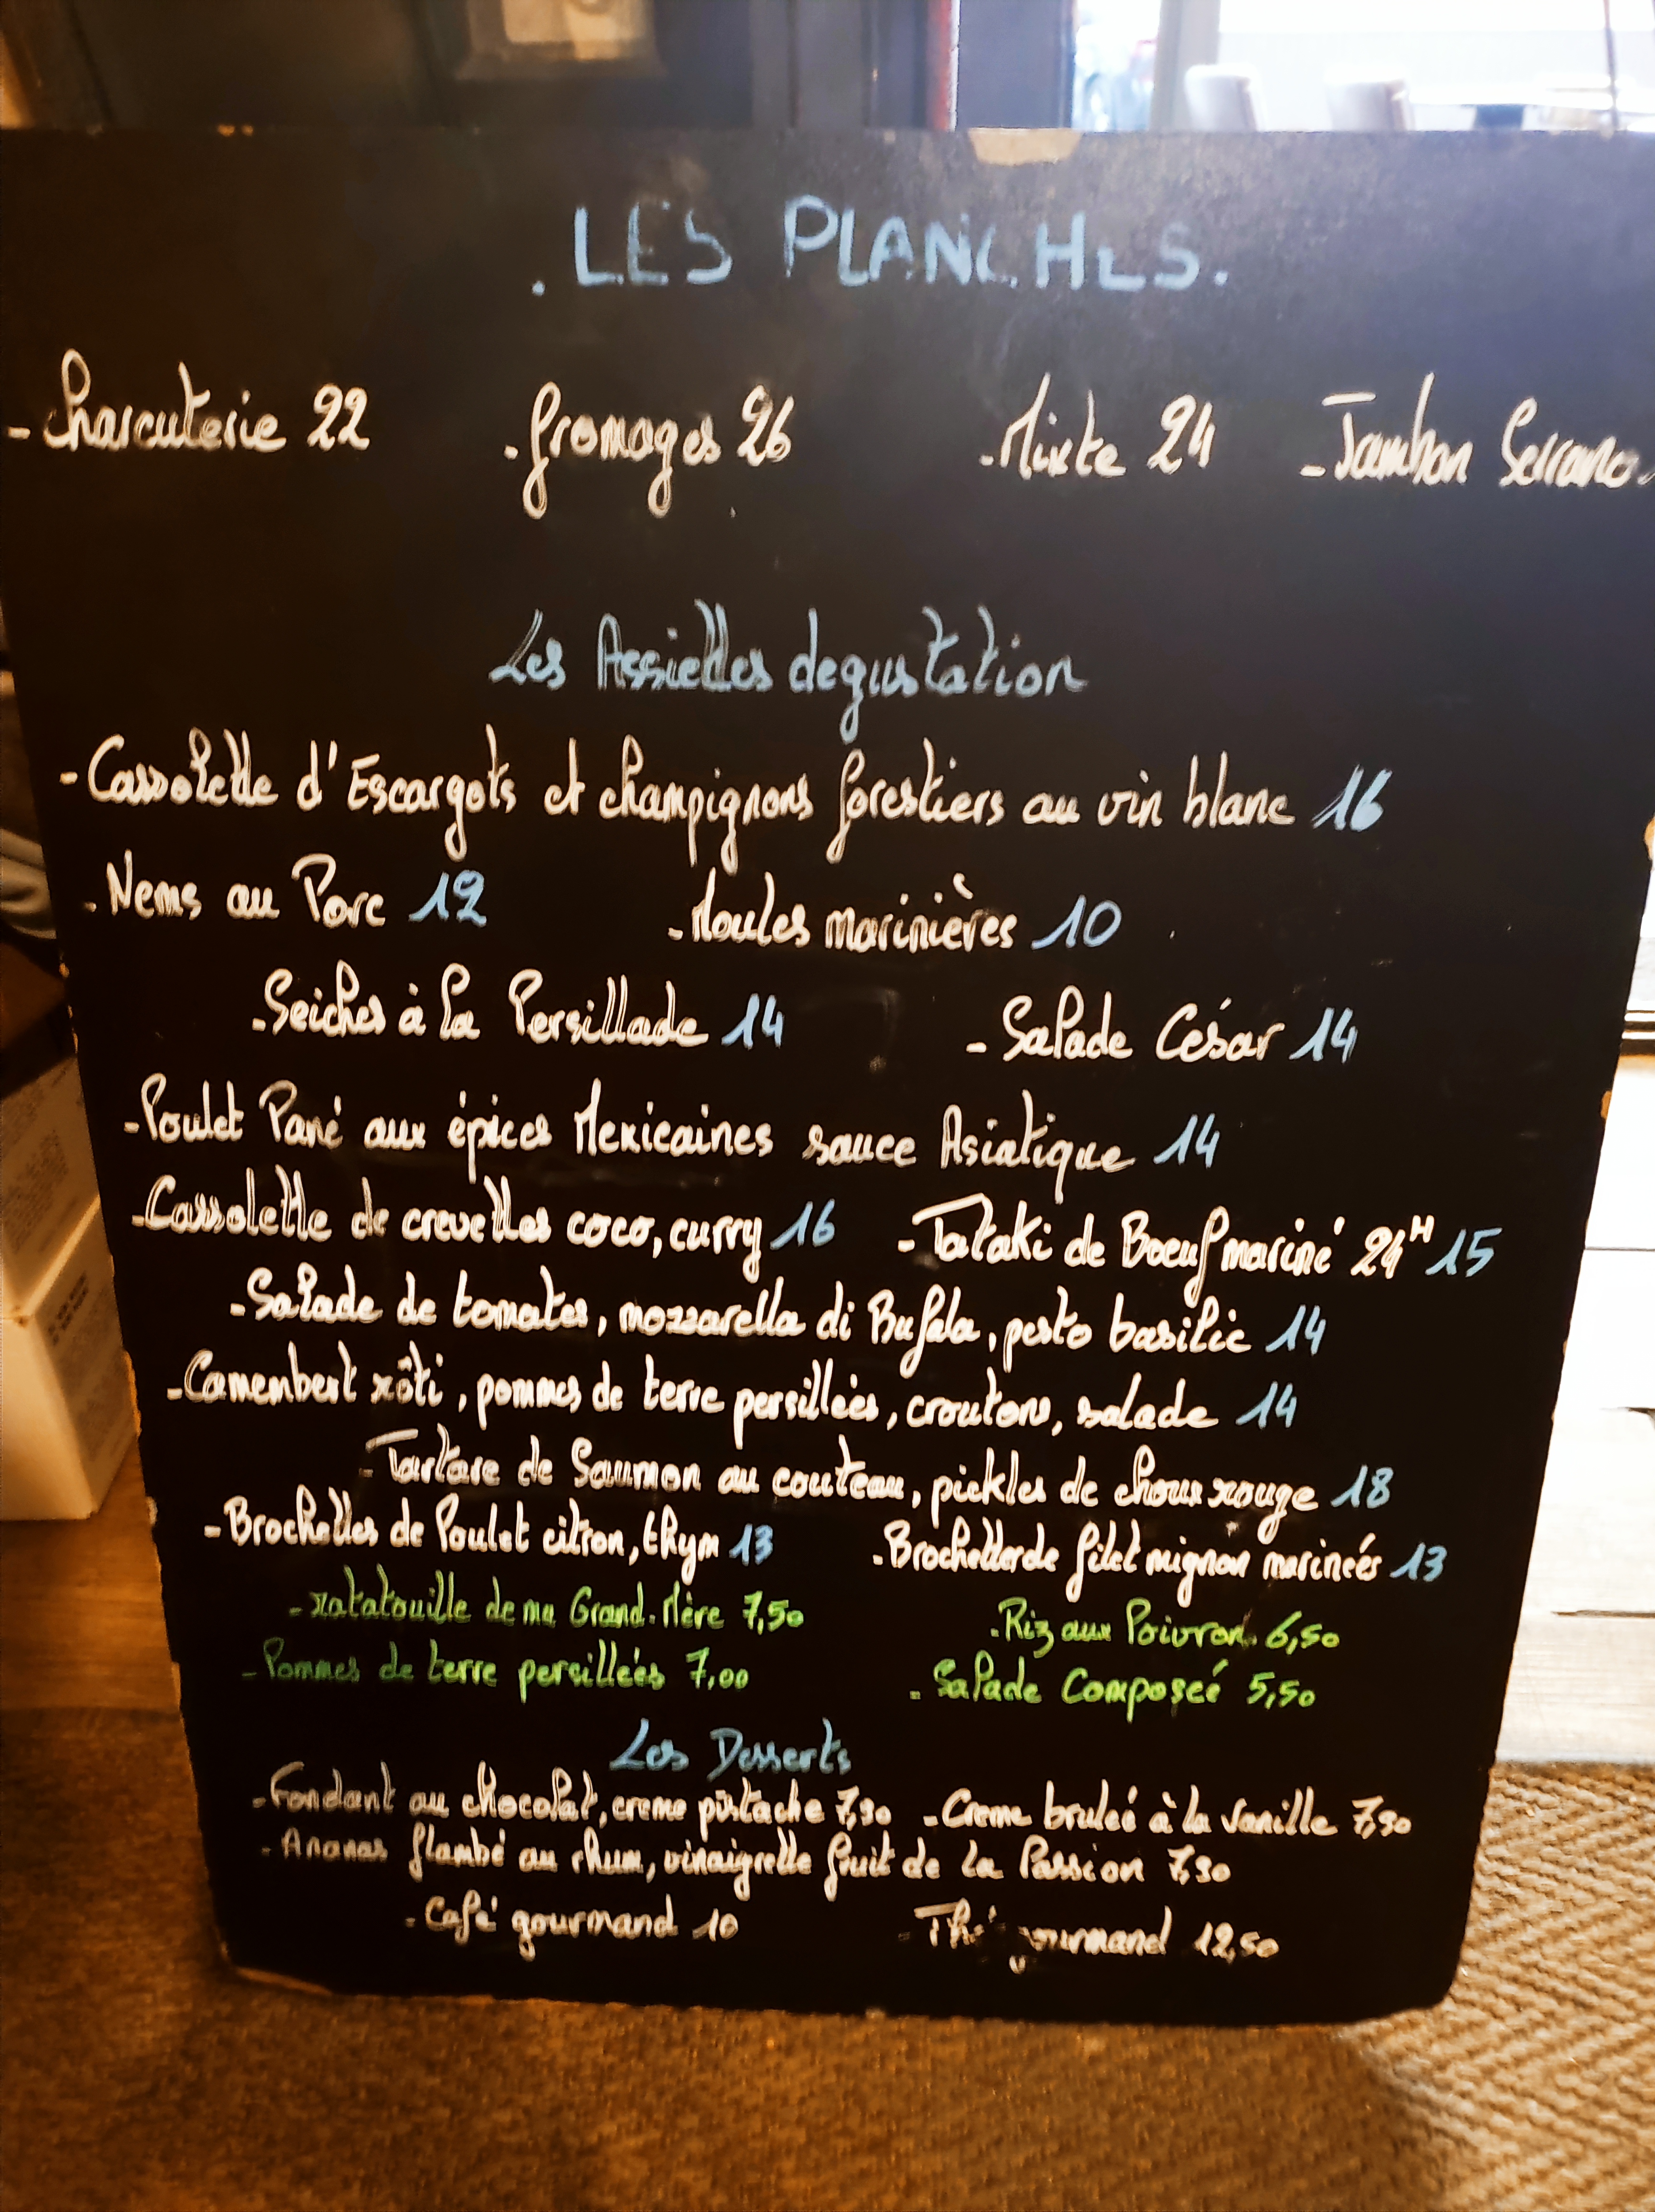 . LES PLANCHES.
- Charcuterie 22 - fromages 26 - Mixte 24 - Jambon Serrano
Les Assiettes degustation
- Cassolette d'Escargots et champignons forestiers au vin blanc 16
- Nems au Porc 12 - Moules marinières 10
- Seiches à la Persillade 14 - Salade César 14
- Poulet Pané aux épices Mexicaines sauce Asiatique 14
- Cassolette de crevettes coco, curry 16 - Tataki de Boeuf mariné 24H 15
- Salade de tomates, mozzarella di Bufala, pesto basilic 14
- Camembert rôti, pommes de terre persillées, croutons, salade 14
- Tartare de Saumon au couteau, pickles de choux rouge 18
- Brochettes de Poulet citron, thym 13 - Brochettes de filet mignon marineés 13
- ratatouille de ma Grand-Mère 7,50 - Riz aux Poivron 6,50
- Pommes de terre persilleés 7,00 - Salade Composeé 5,50
Les Desserts
- Fondant au chocolat, creme pistache 7,50 - Creme bruleé à la Vanille 7,50
- Ananas flambé au rhum, vinaigrette fruit de la Passion 7,50
- Café gourmand 10 - Thé gourmand 12,50